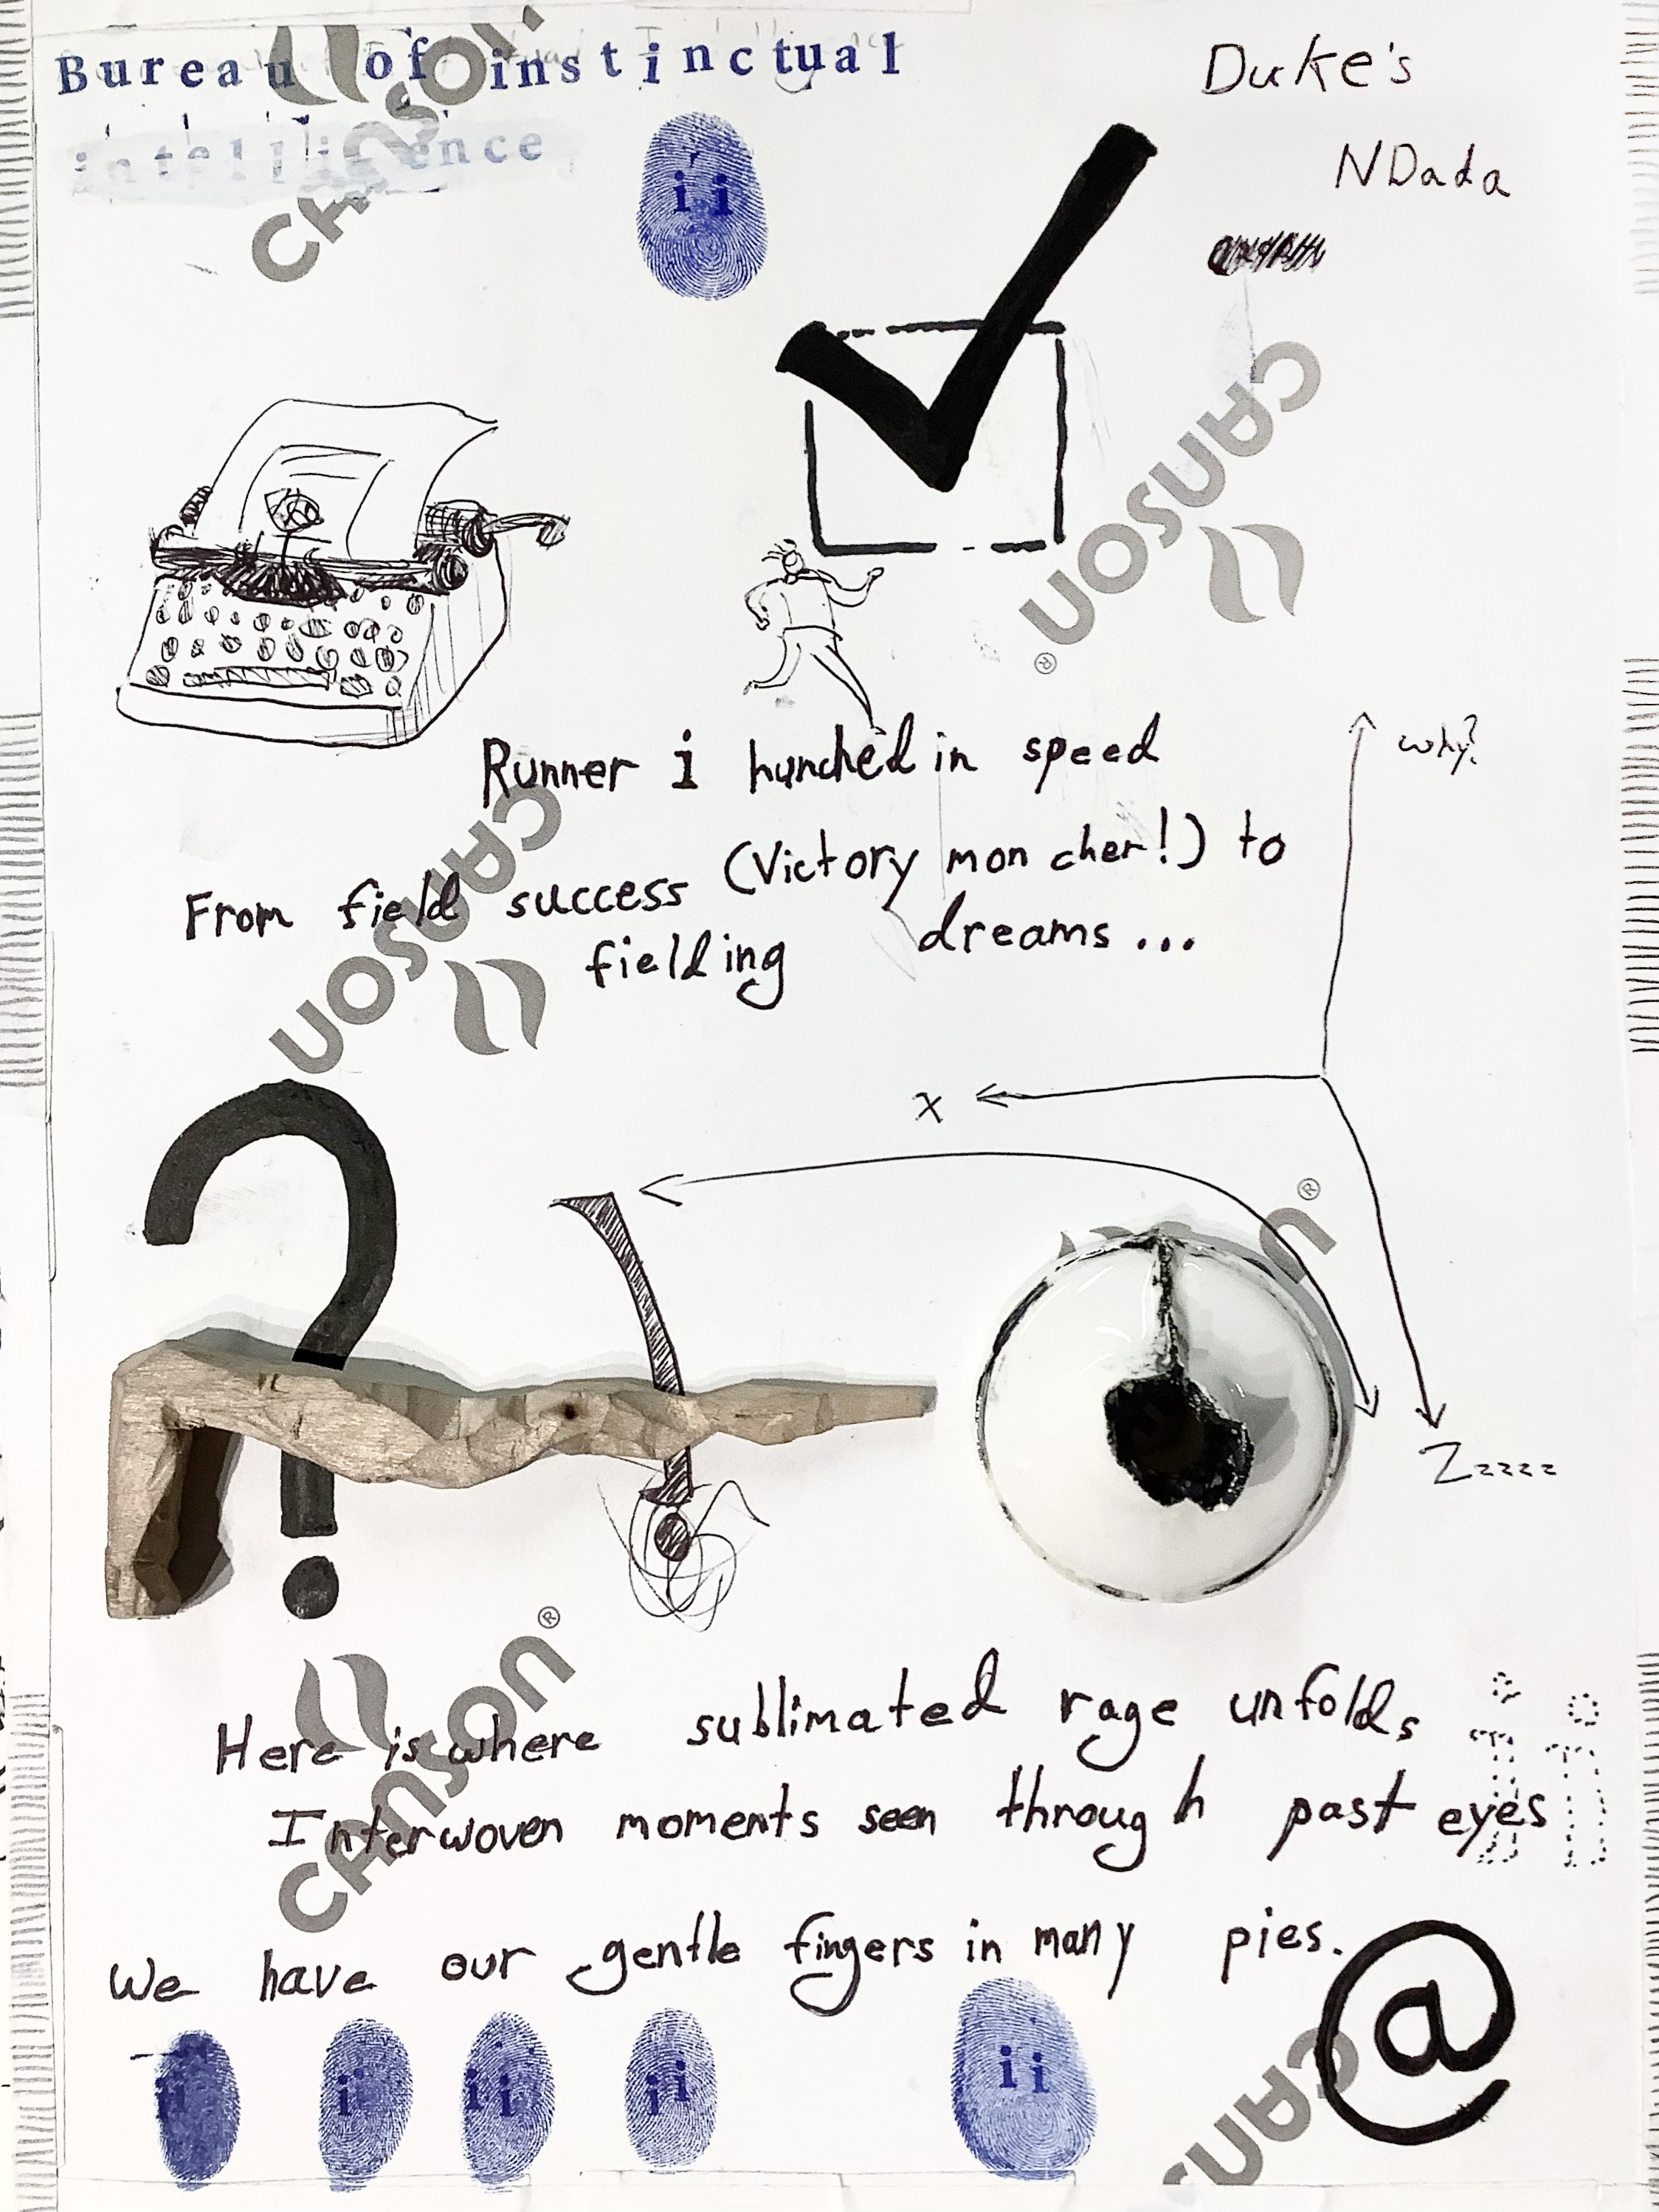 Bureau of instinctual
intelligence
Duke's
NDada
ii
CANSON
CANSON®
Runner i hunched in speed
why?
From field success (Victory mon cher!) to
fielding dreams...
CANSON
x
®
Zzzzz
Here is where sublimated rage unfolds
Interwoven moments seen through past eyes
ii
CANSON®
We have our gentle fingers in many pies.
ii ii ii ii ii
@
CANS